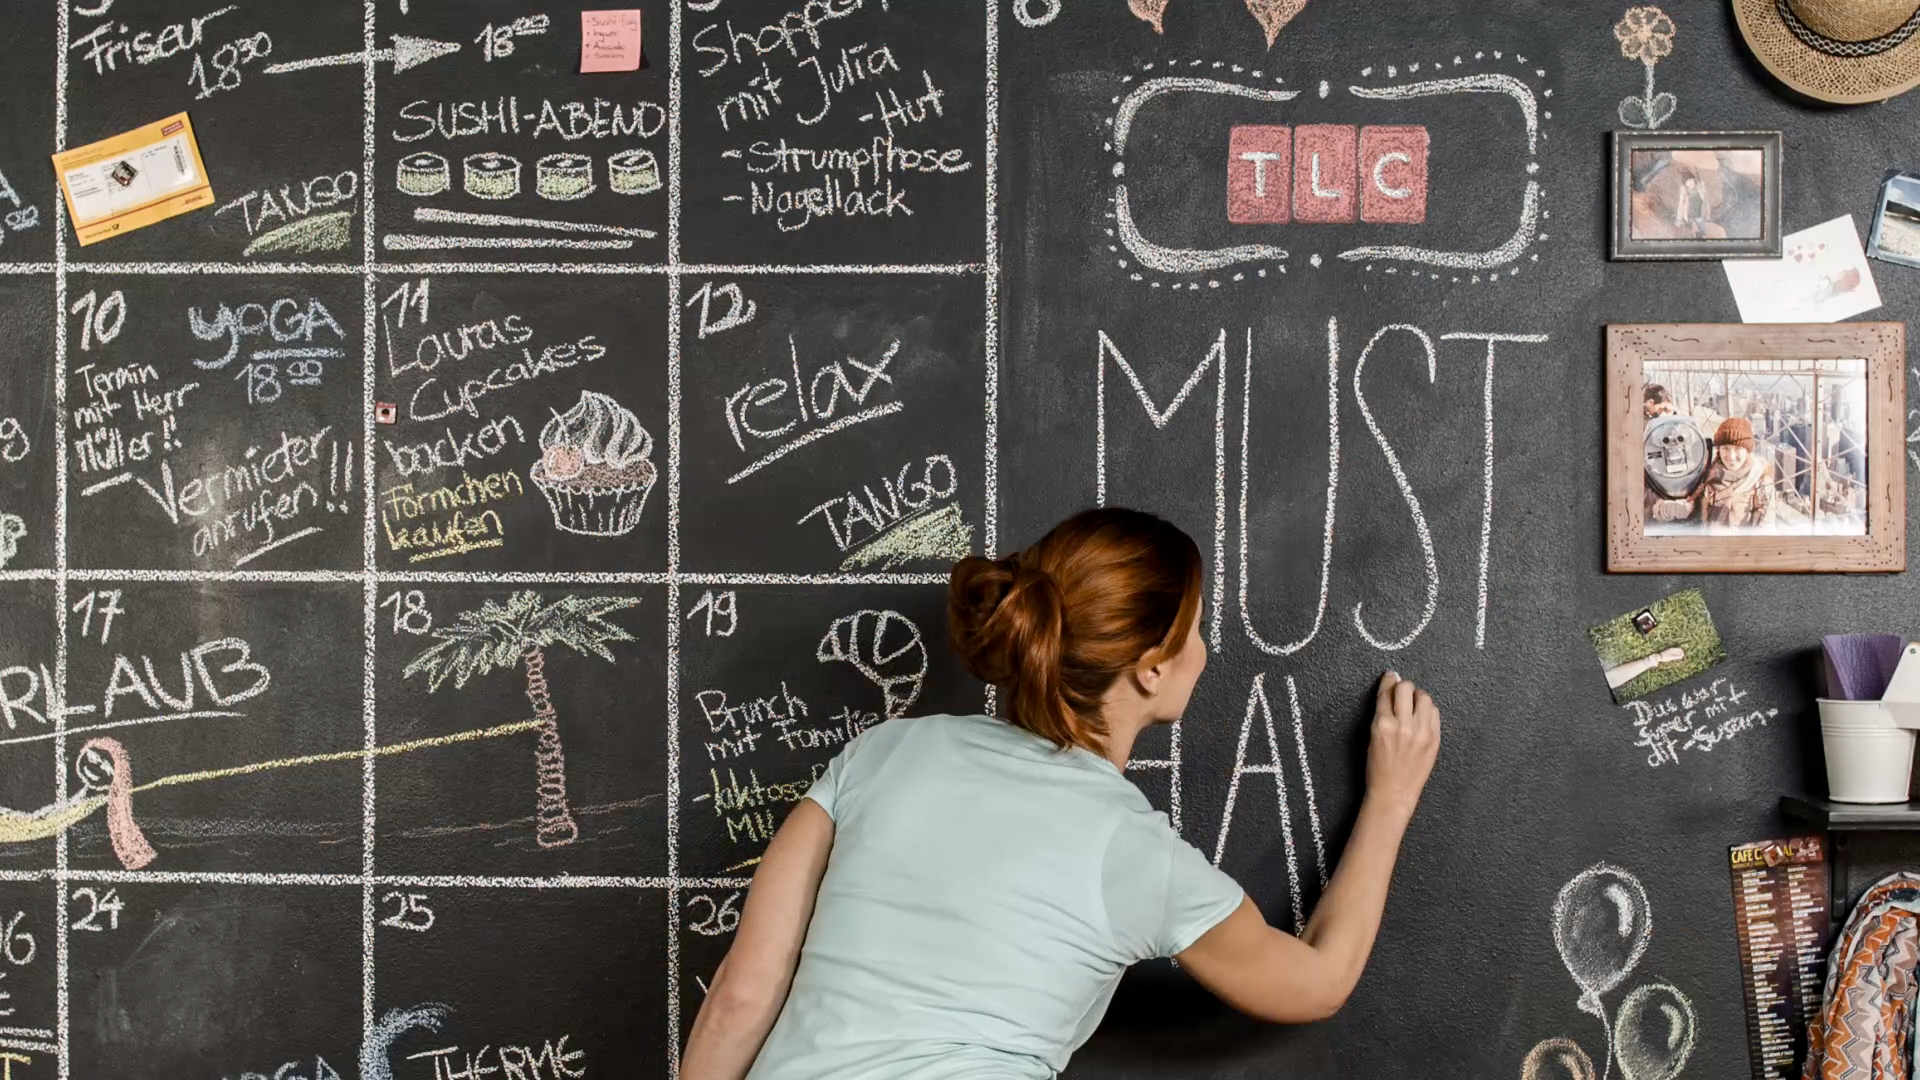 Friseur
18 30
TANGO
18 00
SUSHI-ABEND
Shoppen
mit Julia
-Hut
-Strumpfhose
-Nagellack
8
TLC
10
YOGA
18 00
Termin
mit Herr
Müller!!
Vermieter
anrufen!!
11
Lauras
Cupcakes
backen
Förmchen
kaufen
12
relax
TANGO
MUST
HA
17
RLAUB
18
19
Brunch
mit Familie
Das war
super mit
dir -Susan-
24
25
26
THERME
YOGA